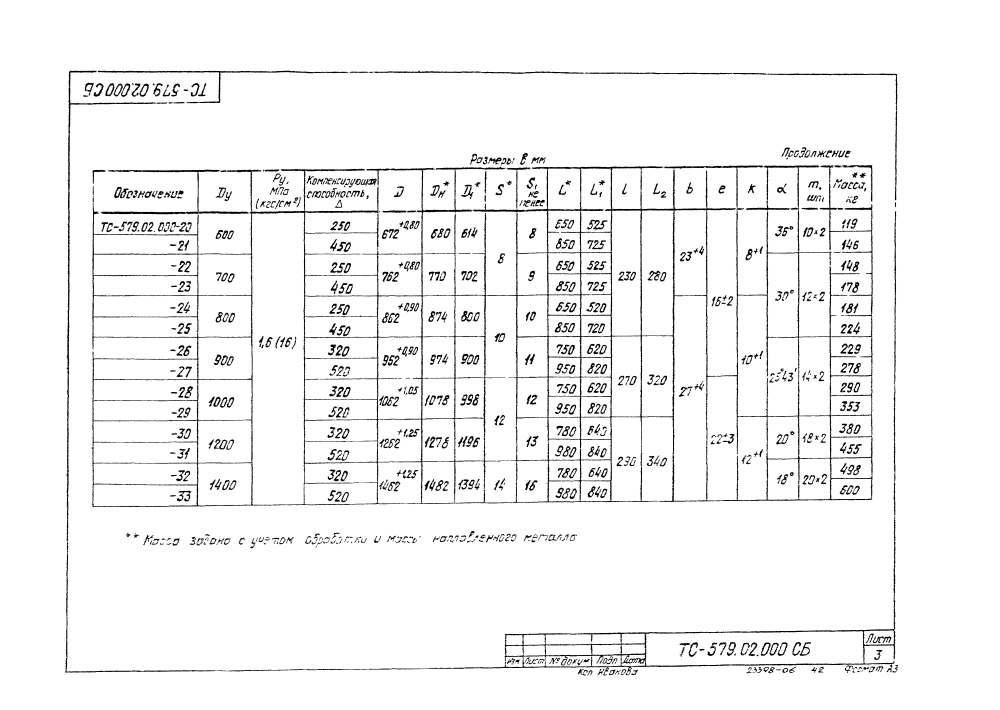 ТС-579.02.000 СБ
Продолжение
Размеры в мм
Обозначение Dу Ру, МПа (кгс/см²) Компенсирующая способность, Δ D Dн* D₁* S* S₁ не менее L* L₁* l L₂ b e k α m, шт. Масса,** кг
ТС-579.02.000-20 600 1,6 (16) 250 672+0,80 680 614 8 8 650 525 230 280 23+4 16±2 8+1 36° 10×2 119
-21 450 850 725 146
-22 700 250 762+0,80 770 702 9 650 525 30° 12×2 148
-23 450 850 725 178
-24 800 250 862+0,90 874 800 10 10 650 520 27+4 10+1 181
-25 450 850 720 224
-26 900 320 962+0,90 974 900 11 750 620 270 320 25°43' 14×2 229
-27 520 950 820 278
-28 1000 320 1062+1,05 1078 996 12 12 750 620 22±3 290
-29 520 950 820 353
-30 1200 320 1262+1,25 1278 1196 13 780 640 290 340 12+1 20° 18×2 380
-31 520 980 840 455
-32 1400 320 1462+1,25 1482 1394 14 16 780 640 18° 20×2 498
-33 520 980 840 600
** Масса задана с учетом обработки и массы наплавленного металла
Изм Лист № докум Подп Дата
ТС-579.02.000 СБ
Лист
3
Коп Иванова
23398-06 42 Формат А3